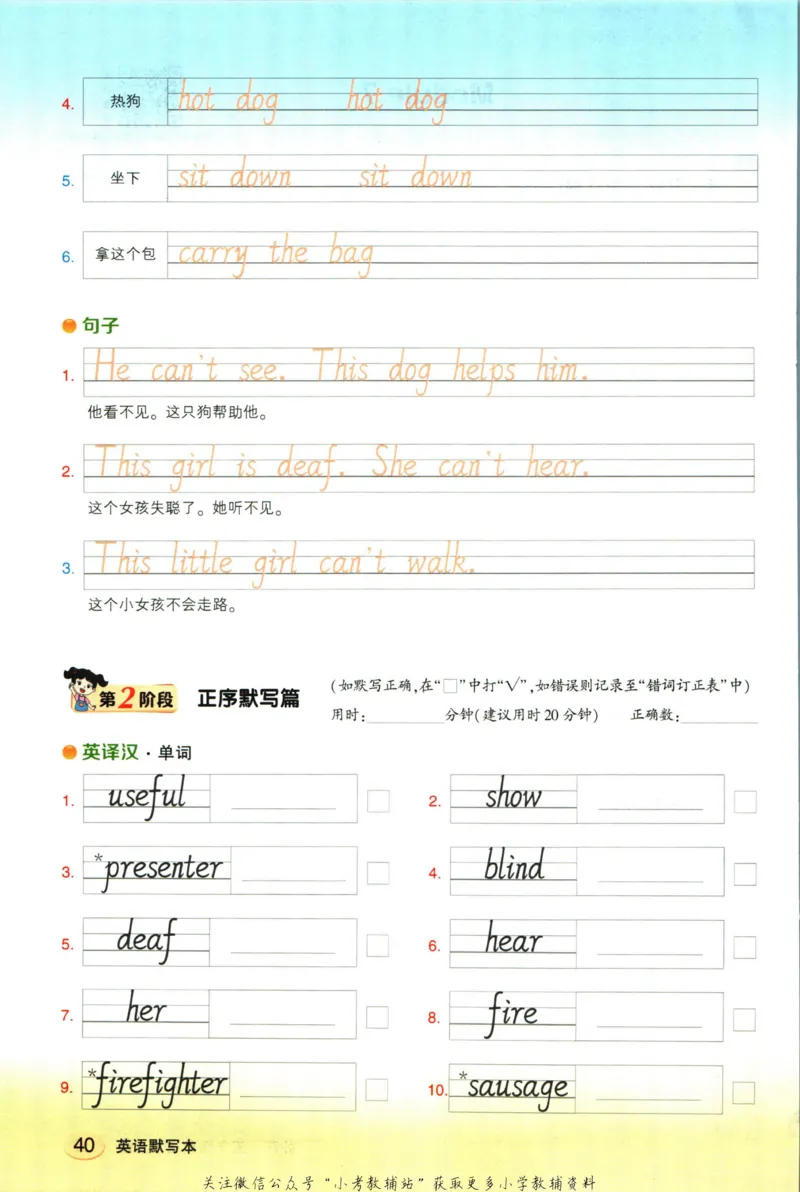 4. 热狗 hot dog hot dog
5. 坐下 sit down sit down
6. 拿这个包 carry the bag
句子
1. He can't see. This dog helps him.
他看不见。这只狗帮助他。
2. This girl is deaf. She can't hear.
这个女孩失聪了。她听不见。
3. This little girl can't walk.
这个小女孩不会走路。
第2阶段 正序默写篇 (如默写正确,在“□”中打“√”,如错误则记录至“错词订正表”中)
用时:________分钟(建议用时20分钟) 正确数:________
英译汉·单词
1. useful ________ □ 2. show ________ □
3. *presenter ________ □ 4. blind ________ □
5. deaf ________ □ 6. hear ________ □
7. her ________ □ 8. fire ________ □
9. *firefighter ________ □ 10. *sausage ________ □
40 英语默写本
关注微信公众号“小考教辅站”获取更多小学教辅资料